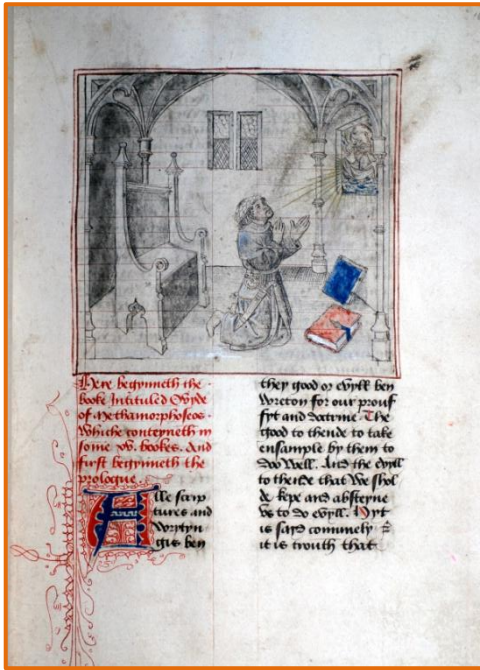 Here begynneth the
booke Intituled Ovyde
of Methamorphoseos.
Whiche conteyneth in
somme xv. bookes. And
first begynneth the
prologue.
Alle scrip
tures and
wrytyn
gis ben
they good or evyll ben
wreton for our prouf
fyt and doctrine. The
good to thende to take
ensample by them to
doo well. And the evyll
to thende that We shol
de kepe and absteyne
vs to do evyll. Hyt
is sayd comunely
it is trouth that